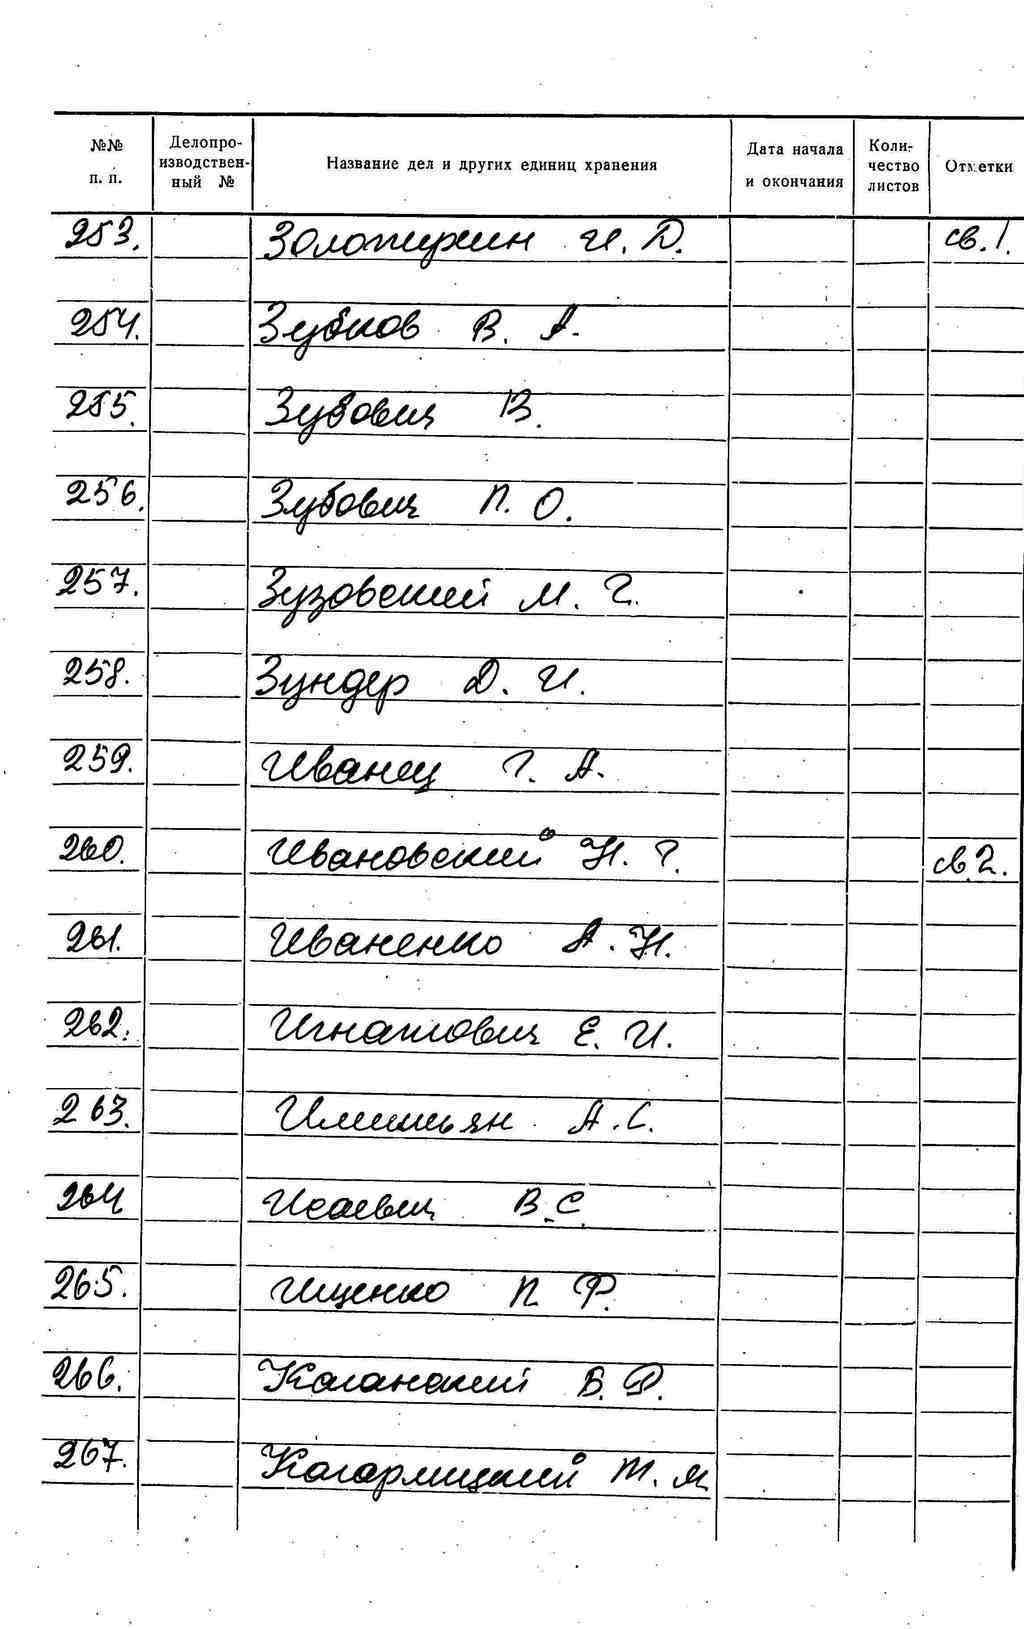 №№ п. п. Делопроизводственный № Название дел и других единиц хранения Дата начала и окончания Количество листов Отметки
253. Золотухин И. Д. св. 1.
254. Зубков В. А.
255. Зубович В.
256. Зубович П. О.
257. Зузовский М. Г.
258. Зундер Д. И.
259. Иванец Г. А.
260. Ивановский Н. Г. св. 2.
261. Иваненко А. Н.
262. Игнатович Е. И.
263. А. С.
264 Исаевич В. С.
265. Ищенко П. Ф.
266. Каганский Б. Р.
267. Кагарлицкий М. Я.